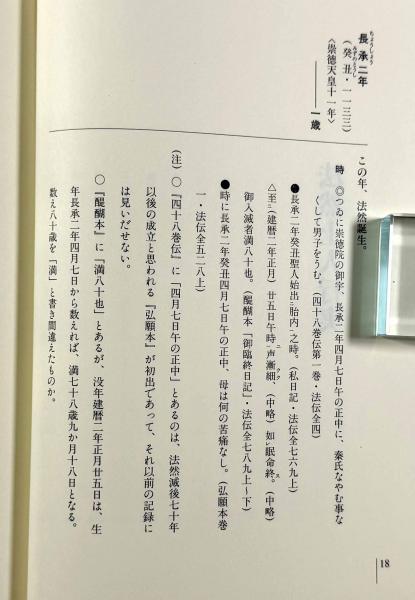 長承二年
ちょうしょう
(癸丑・一一三三)
みずのとうし
〈崇徳天皇十一年〉
――一歳
この年、法然誕生。
時 ◎つゐに崇徳院の御宇、長承二年四月七日午の正中に、秦氏なやむ事な
くして男子をうむ。(四十八巻伝第一巻・法伝全四)
●長承二年癸丑聖人始出二胎内一之時。(私日記・法伝全七六九上)
△至二(建暦二年正月)廿五日午時一声漸細、(中略)如レ眠命終。(中略)
御入滅者満八十也。(醍醐本「御臨終日記」・法伝全七八九上〜下)
●時に長承二年癸丑四月七日午の正中、母は何の苦痛なし。(弘願本巻
一・法伝全五二八上)
(注)○『四十八巻伝』に「四月七日午の正中」とあるのは、法然滅後七十年
以後の成立と思われる『弘願本』が初出であって、それ以前の記録に
は見いだせない。
○『醍醐本』に「満八十也」とあるが、没年建暦二年正月廿五日は、生
年長承二年四月七日から数えれば、満七十八歳九か月十八日となる。
数え八十歳を「満」と書き間違えたものか。
18